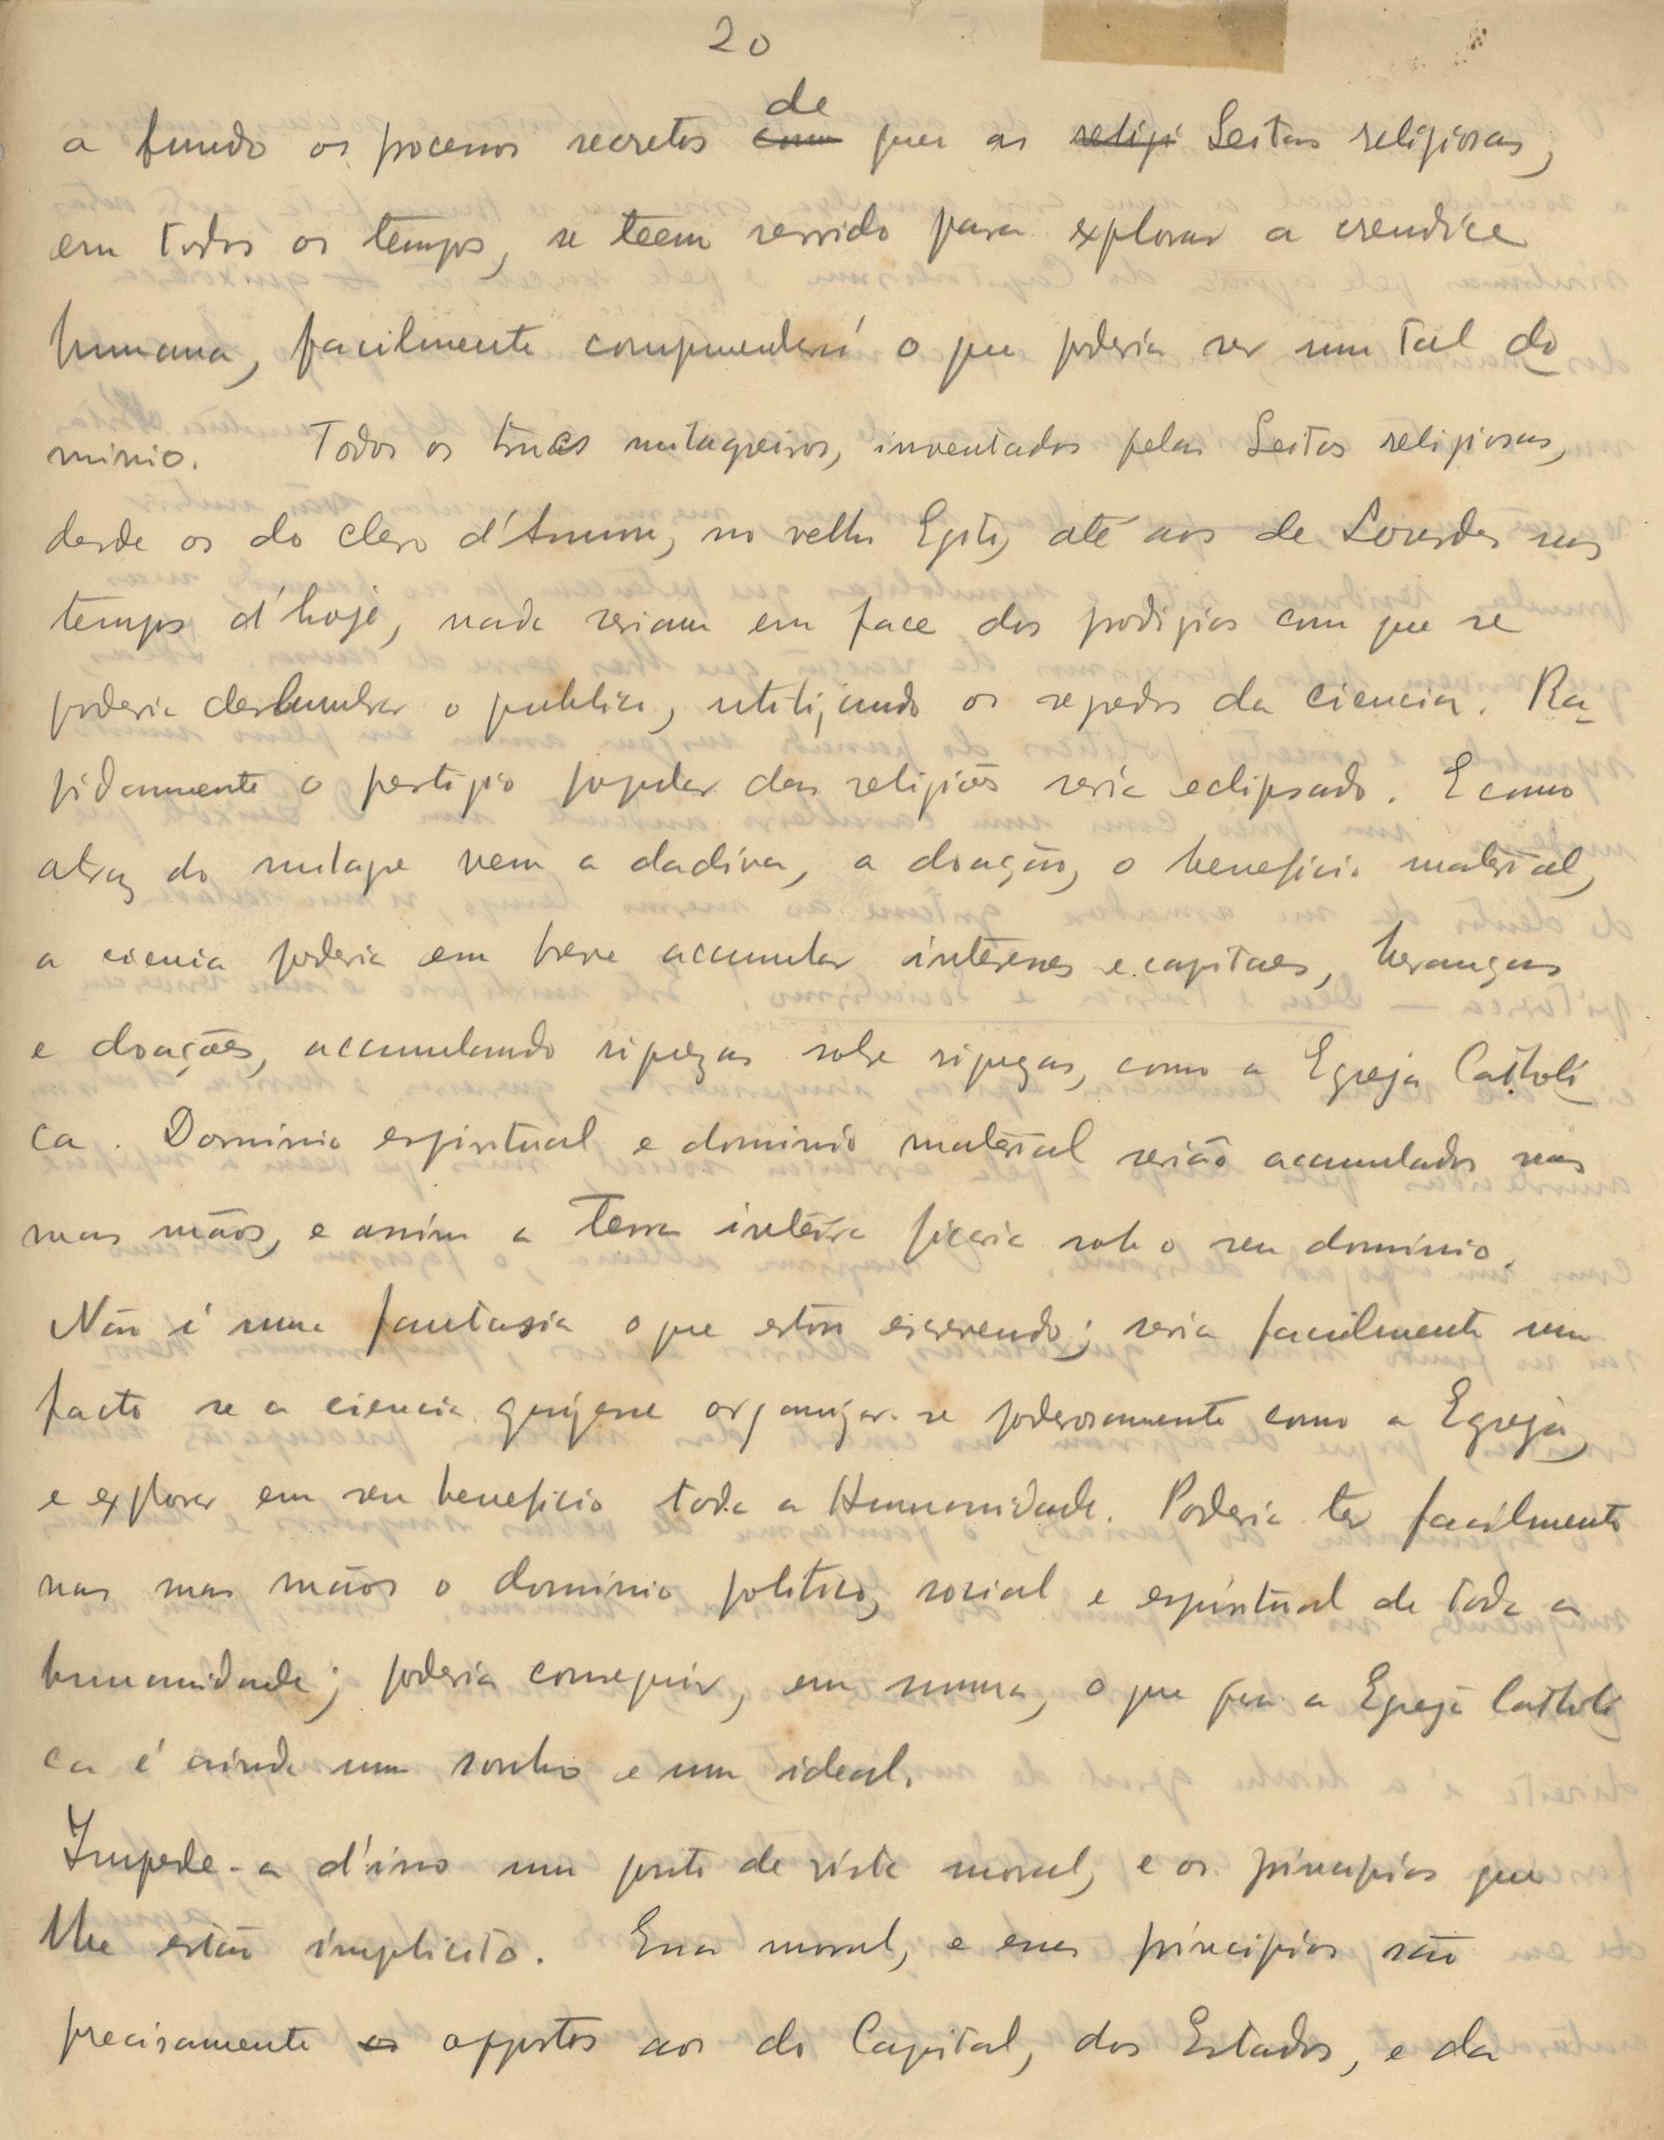 20
a fundo os processos secretos de que as Seitas religiosas,
em todos os tempos, se teem servido para explorar a crendice
humana, facilmente comprehenderá o que poderia ser um tal do
minio. Todos os trucs milagreiros, inventados pelas Seitas religiosas,
desde os do clero d'Ammon, no velho Egito, até aos de Lourdes nos
tempos d'hoje, nada seriam em face dos prodigios com que se
poderia deslumbrar o publico, utilizando os segredos da ciencia. Ra-
pidamente o prestigio popular das religiões seria eclipsado. E como
atraz do milagre vem a dadiva, a doação, o beneficio material,
a ciencia poderia em breve acumular interesses e capitaes, heranças
e doações, acumulando riquezas sobre riquezas, como a Egreja Catholi
ca. Dominio espiritual e dominio material serião acumulados nas
suas mãos, e assim a Terra inteira ficaria sob o seu dominio.
Não é uma fantasia o que estou escrevendo; seria facilmente um
facto se a ciencia quizesse organizar-se poderosamente como a Egreja,
e explorar em seu beneficio toda a Humanidade. Poderia ter facilmente
nas suas mãos o dominio politico, social e espiritual de toda a
humanidade; poderia conseguir, em summa, o que para a Egreja Catholi
ca é ainda um sonho e um ideal.
Impede-a d'isso um ponto de vista moral, e os principios que
lhe estão implicito. Essa moral, e esses principios são
precisamente os oppostos aos do Capital, dos Estados, e da